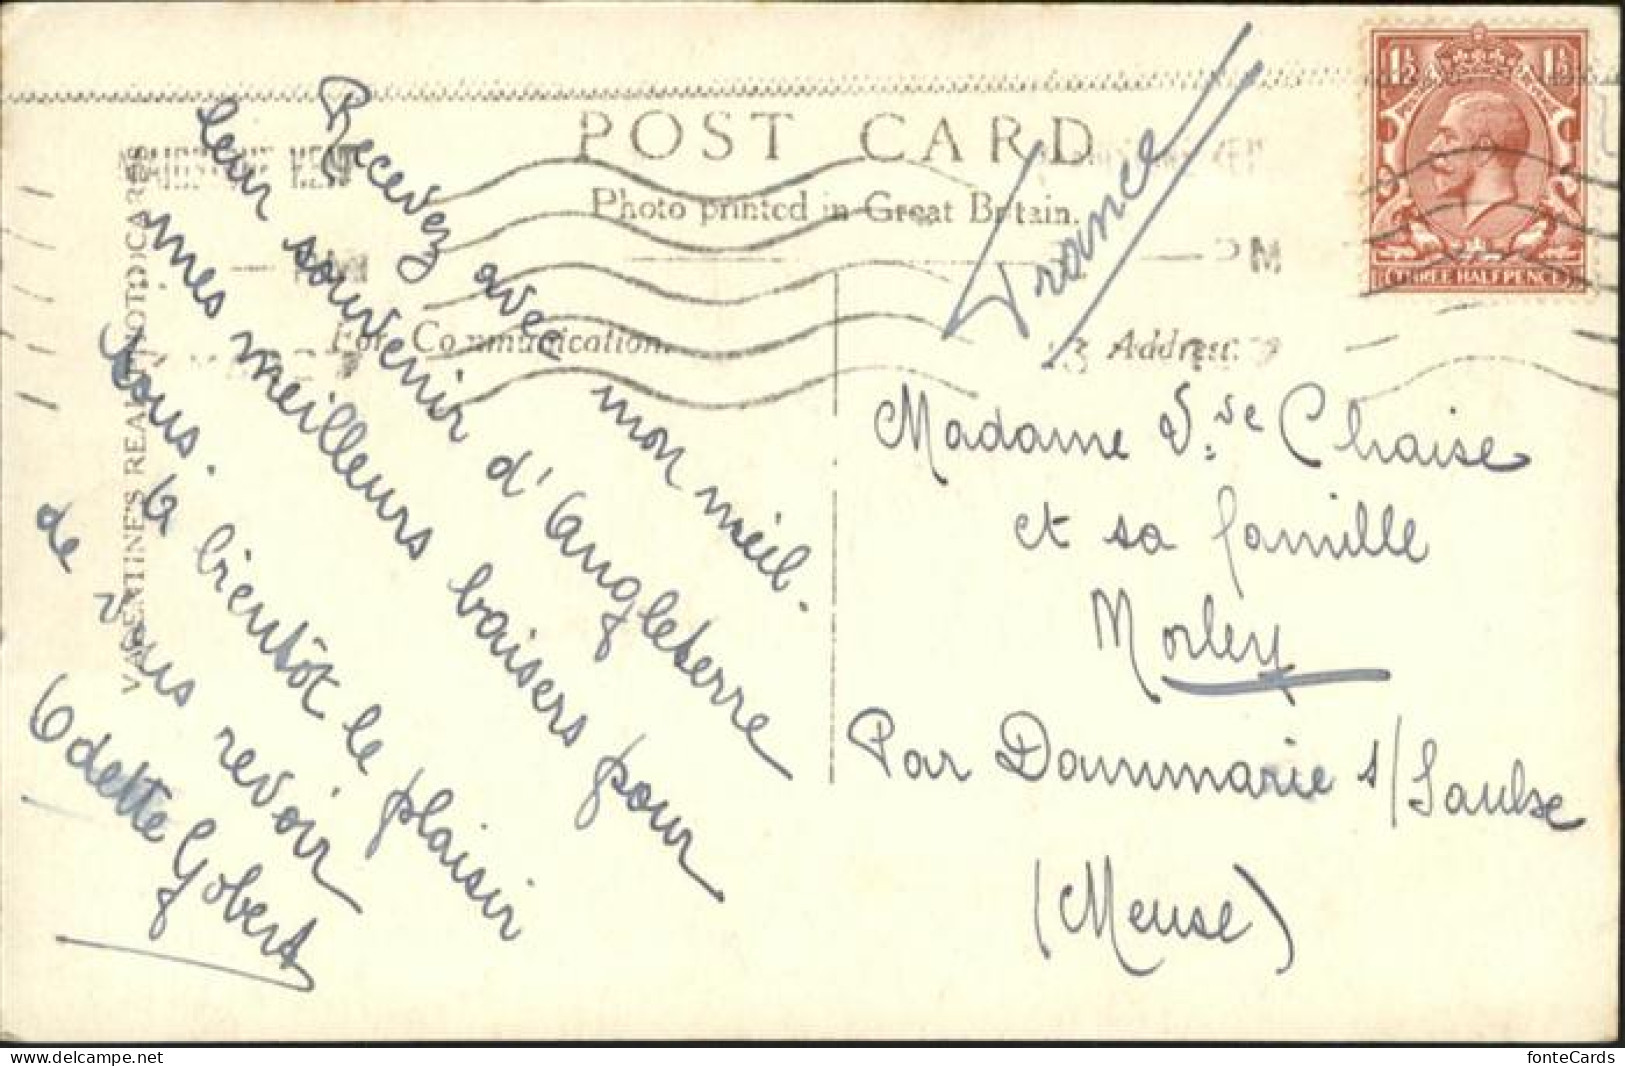 POST CARD
Photo printed in Great Britain.
For Communication.
Address.
VALENTINE'S REAL PHOTO CARDS
1½ 1½
THREE HALFPENCE
PM
France
Recevez avec mon meil-
leur souvenir d'Angleterre
mes meilleurs baisers pour
tous.
A bientôt le plaisir
de vous revoir
Odette Gobert
Madame Vve Chaise
et sa famille
Morley
Par Dammarie s/Saulxe
(Meuse)
fonteCards